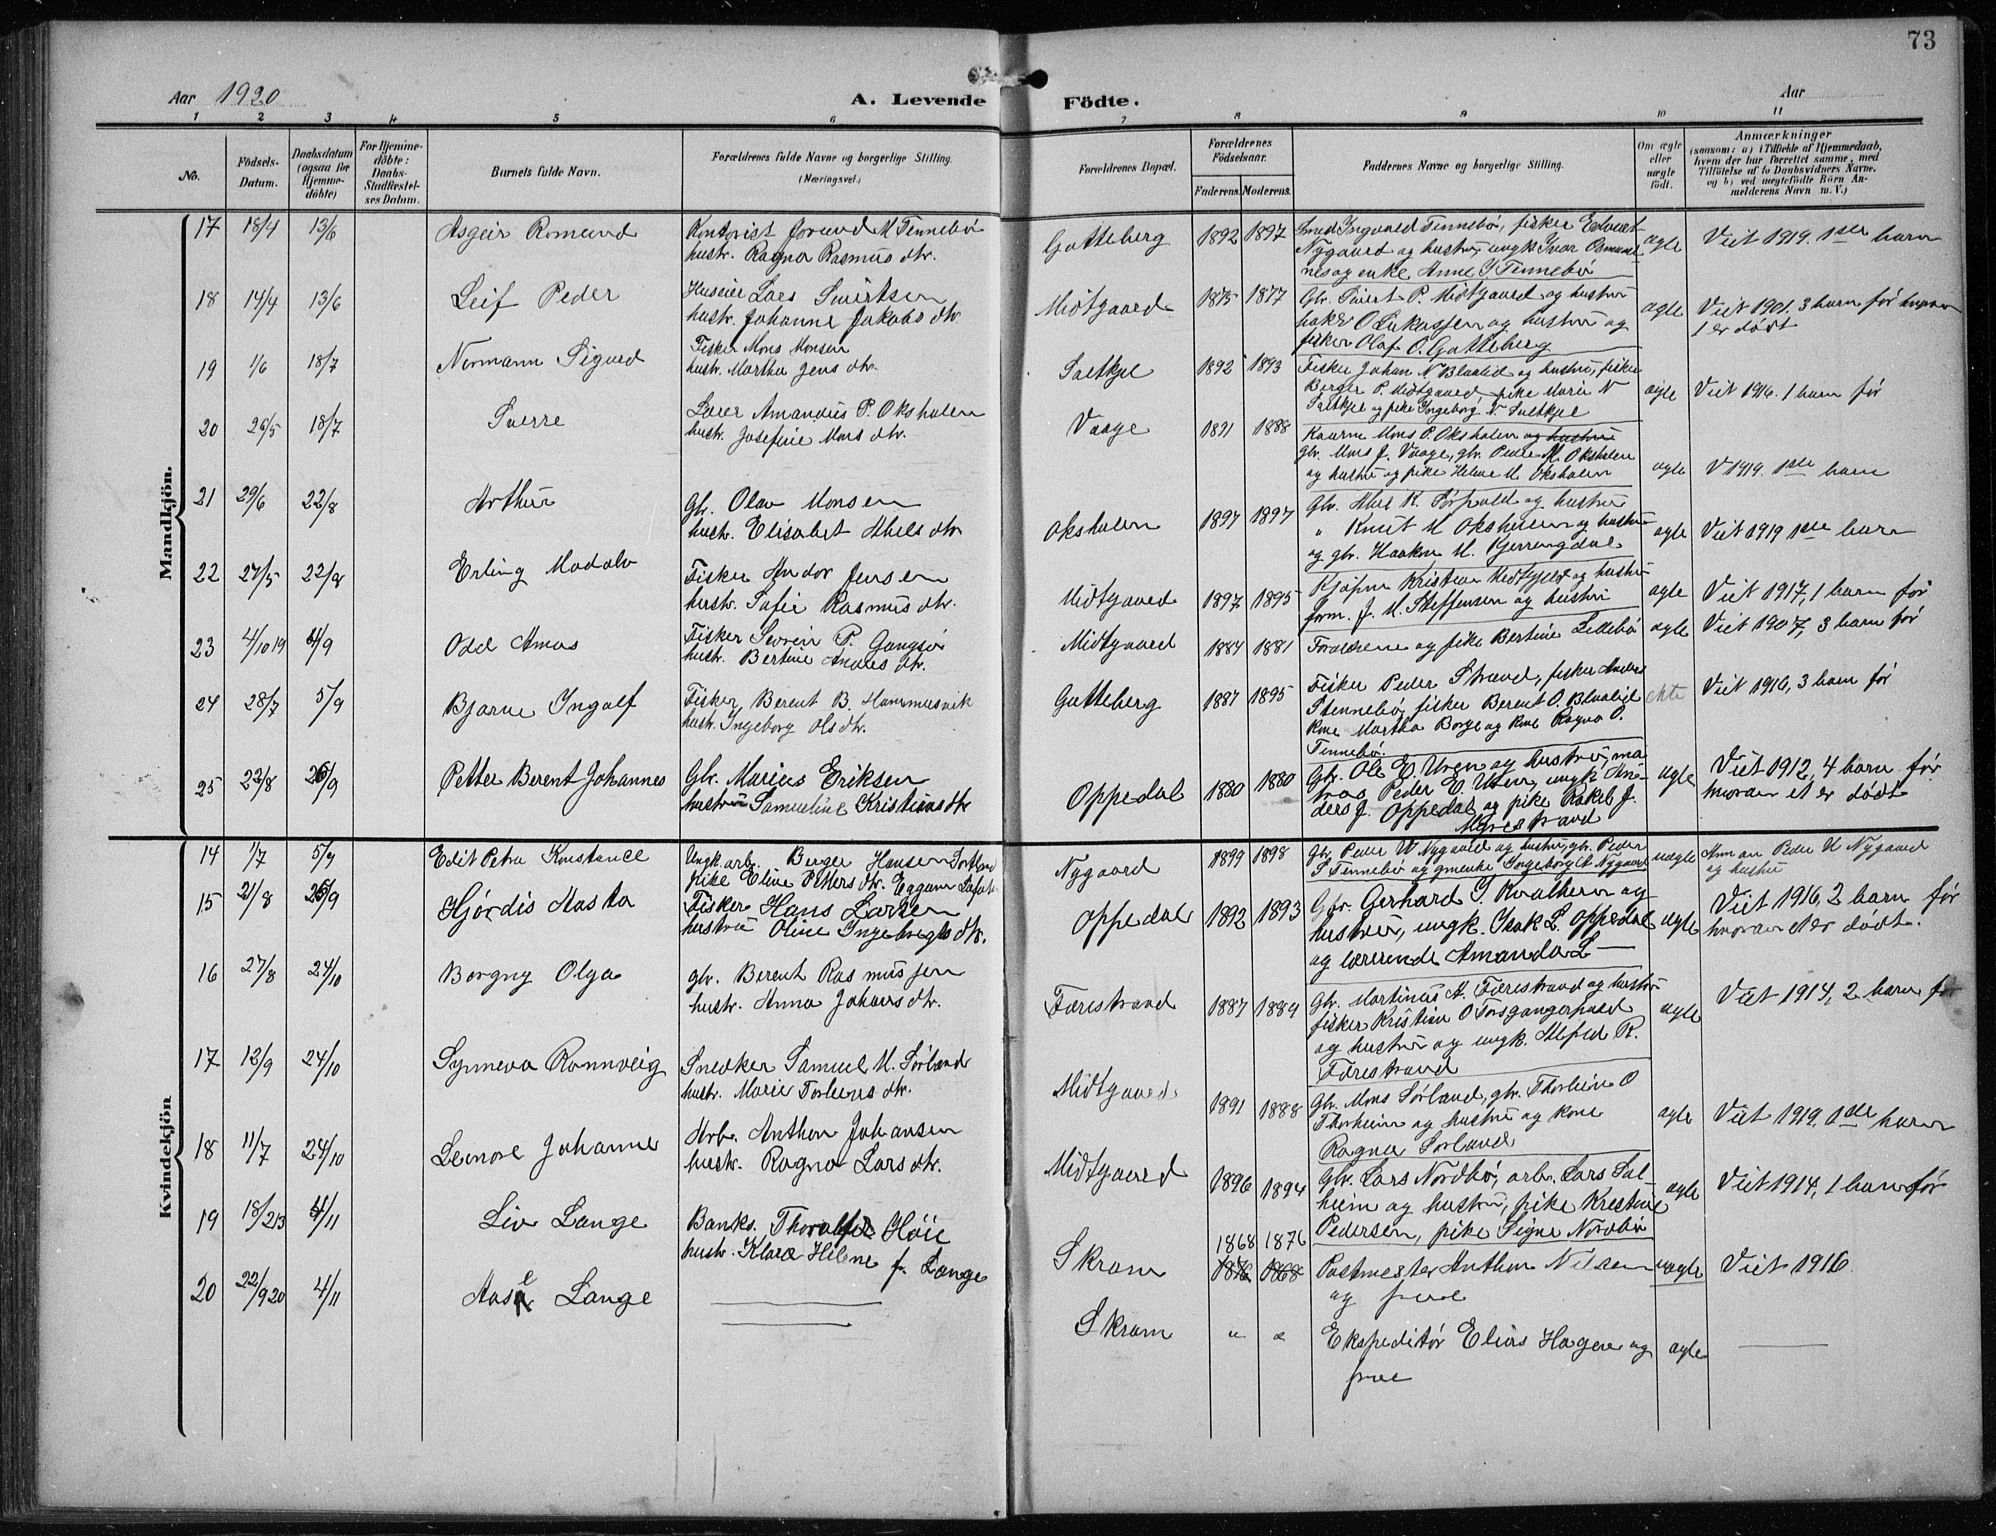 73
Aar 1920
A. Levende Födte.
Aar
1 2 3 4 5 6 7 8 9 10 11
No.
Födsels-Datum.
Daabsdatum (ogsaa for Hjemme-döbte)
For Hjemme-döbte: Daabs-Stadfæstel-ses Datum.
Barnets fulde Navn.
Forældrenes fulde Navne og borgerlige Stilling. (Næringsvei.)
Forældrenes Bopæl.
Forældrenes Födselsaar.
Faderens. Moderens.
Faddernes Navne og borgerlige Stilling.
Om ægte eller uægte født.
Anmærkninger
(saasom: a) i Tilfælde af Hjemmedaab, hvem der har forrettet samme, med Tilföielse af to Daabsvidners Navne, og b) ved uægtefödte Börn An-melderens Navn m. V.)
Mandkjön.
17 18/4 13/6 Asgeir Romund
hustr. Ragna Rasmus dtr.
Gotteberg 1892 1897
Nygaard og hustru, ungk. Ivar
nes og enke Anne I. Tennebø
ægte Viet 1919. 1ste barn
18 14/4 13/6 Leif Peder
hustr. Johanne Jakobs dtr.
Midtgaard 1875 1877
Gbr. Sivert P. Midtgaard og hustru
fisker Olaf O. Gotteberg
ægte Viet 1901. 3 barn før hvorav
1 er dødt
19 1/6 18/7 Normann Sigurd
Fisker Mons Monsen
hustr. Martha Jens dtr.
Saltkjel 1892 1893
Fisker Johan N Blaalid og hustru, fisker
Berger P. Midtgaard, pike Marie N
Saltkjel og pike Ingeborg N. Saltkjel
ægte Viet 1916. 1 barn før
20 26/5 18/7 Sverre
Lærer Amandus P. Oksholen
hustr. Josefine Mons dtr.
Vaage 1891 1888
Mons P. Oksholen og hustru
gbr. Mons J. Vaage, gbr. Peder M. Oksholen
og hustru og pike Helene M. Oksholen
ægte V 1919. 1ste barn
21 29/6 22/8 Arthur
Gbr. Olav Monsen
hustr. Elisabet Abels dtr.
Oksholen 1897 1897
" Knut M Oksholen og hustru
og gbr. Haakon M.
ægte Viet 1919 1ste barn
22 27/5 22/8 Erling Modolv
Fisker Andor Jensen
hustr. Sofie Rasmus dtr.
Midtgaard 1897 1895
Kjøpm Kristian Midtgaard og hustru
form. J. M. Steffensen og hustru
ægte Viet 1917, 1 barn før
23 4/10 19 4/9 Odd Amos
Fisker Severin P. Gangsø
hustr. Bertine Anders dtr.
Midtgaard 1884 1881
Forældrene og pike Bertine Lillebø
ægte Viet 1907, 3 barn før
24 28/7 5/9 Bjarne Ingolf
Fisker Berent B. Hammersvik
hustr. Ingeborg Ols dtr.
Gotteberg 1887 1895
Fisker Peder Strand, fisker Anders
Stennebø, fisker Berent O. Blaalid
kone Martha Borge og kone Ragna O.
Tennebø.
ekte Viet 1916, 3 barn før
25 22/8 26/9 Petter Berent Johannes
Gbr. Marius Eriksen
hustru Samueline Kristians dtr
Oppedal 1880 1880
Gbr. Ole E. Uren og hustru, ma-
tros Peder E. Uren, ungk. An-
ders J. Oppedal og pike Rakel J.
ægte Viet 1912, 4 barn før
hvorav et er dødt
Kvindekjön
14 1/7 5/9 Edit Petra Konstance
Ungk. arb. Berger Hansen
pike Eline Petters dtr. Eggum Lofoten
Nygaard 1899 1898
Gbr. Peder W Nygaard og hustru, gbr. Peder
S Tennebø og gmenke Ingeborg A Nygaard
uægte Anm av Peder W Nygaard
og hustru
15 21/8 26/9 Hjørdis Aasta
Fisker Hans Larsen
hustru Oline Ingebregts dtr.
Oppedal 1892 1893
Gbr. Gerhard I. Kvalheim og
hustru, ungk. Isak L. Oppedal
og lærerinde Amanda L —
ægte Viet 1916, 2 barn før
hvorav et er dødt.
16 27/8 24/10 Borgny Olga
gbr. Berent Rasmussen
hustr. Anna Johans dtr.
Færestrand 1887 1889
Gbr. Martinus A. Færestrand og hustru
fisker Kristian O
og hustru og ungk. Alfred R.
Færestrand
ægte Viet 1914, 2 barn før
17 12/9 24/10 Synneva Rannveig
Snedker Samuel M. Sørland
hustr. Marie Torbens dtr.
Midtgaard 1891 1888
Gbr. Mons Sørland, gbr. Thorheim O
Thorheim og hustru og kone
Ragna Sørland
ægte Viet 1919. 1ste barn
18 11/7 24/10 Leinore Johanne
Arb. Anthon Johansen
hustr. Ragna Lars dtr.
Midtgaard 1896 1894
Gbr. Lars Nordbø, arb. Lars Sol-
heim og hustru, pike Kristine
Pedersen, pike Signe Nordbø
ægte Viet 1914, 1 barn før
19 18/2 13 4/11 Liv Lange
Banks. Thoralf Höie
hustr. Klara Helene f. Lange
Skram 1868 1876
1876 1868
Postmester Anthon Nilsen
og frue
uægte Viet 1916.
20 22/9 20 4/11 Aase Lange
Skram " "
Ekspeditør Elias Hagen og
frue
ægte